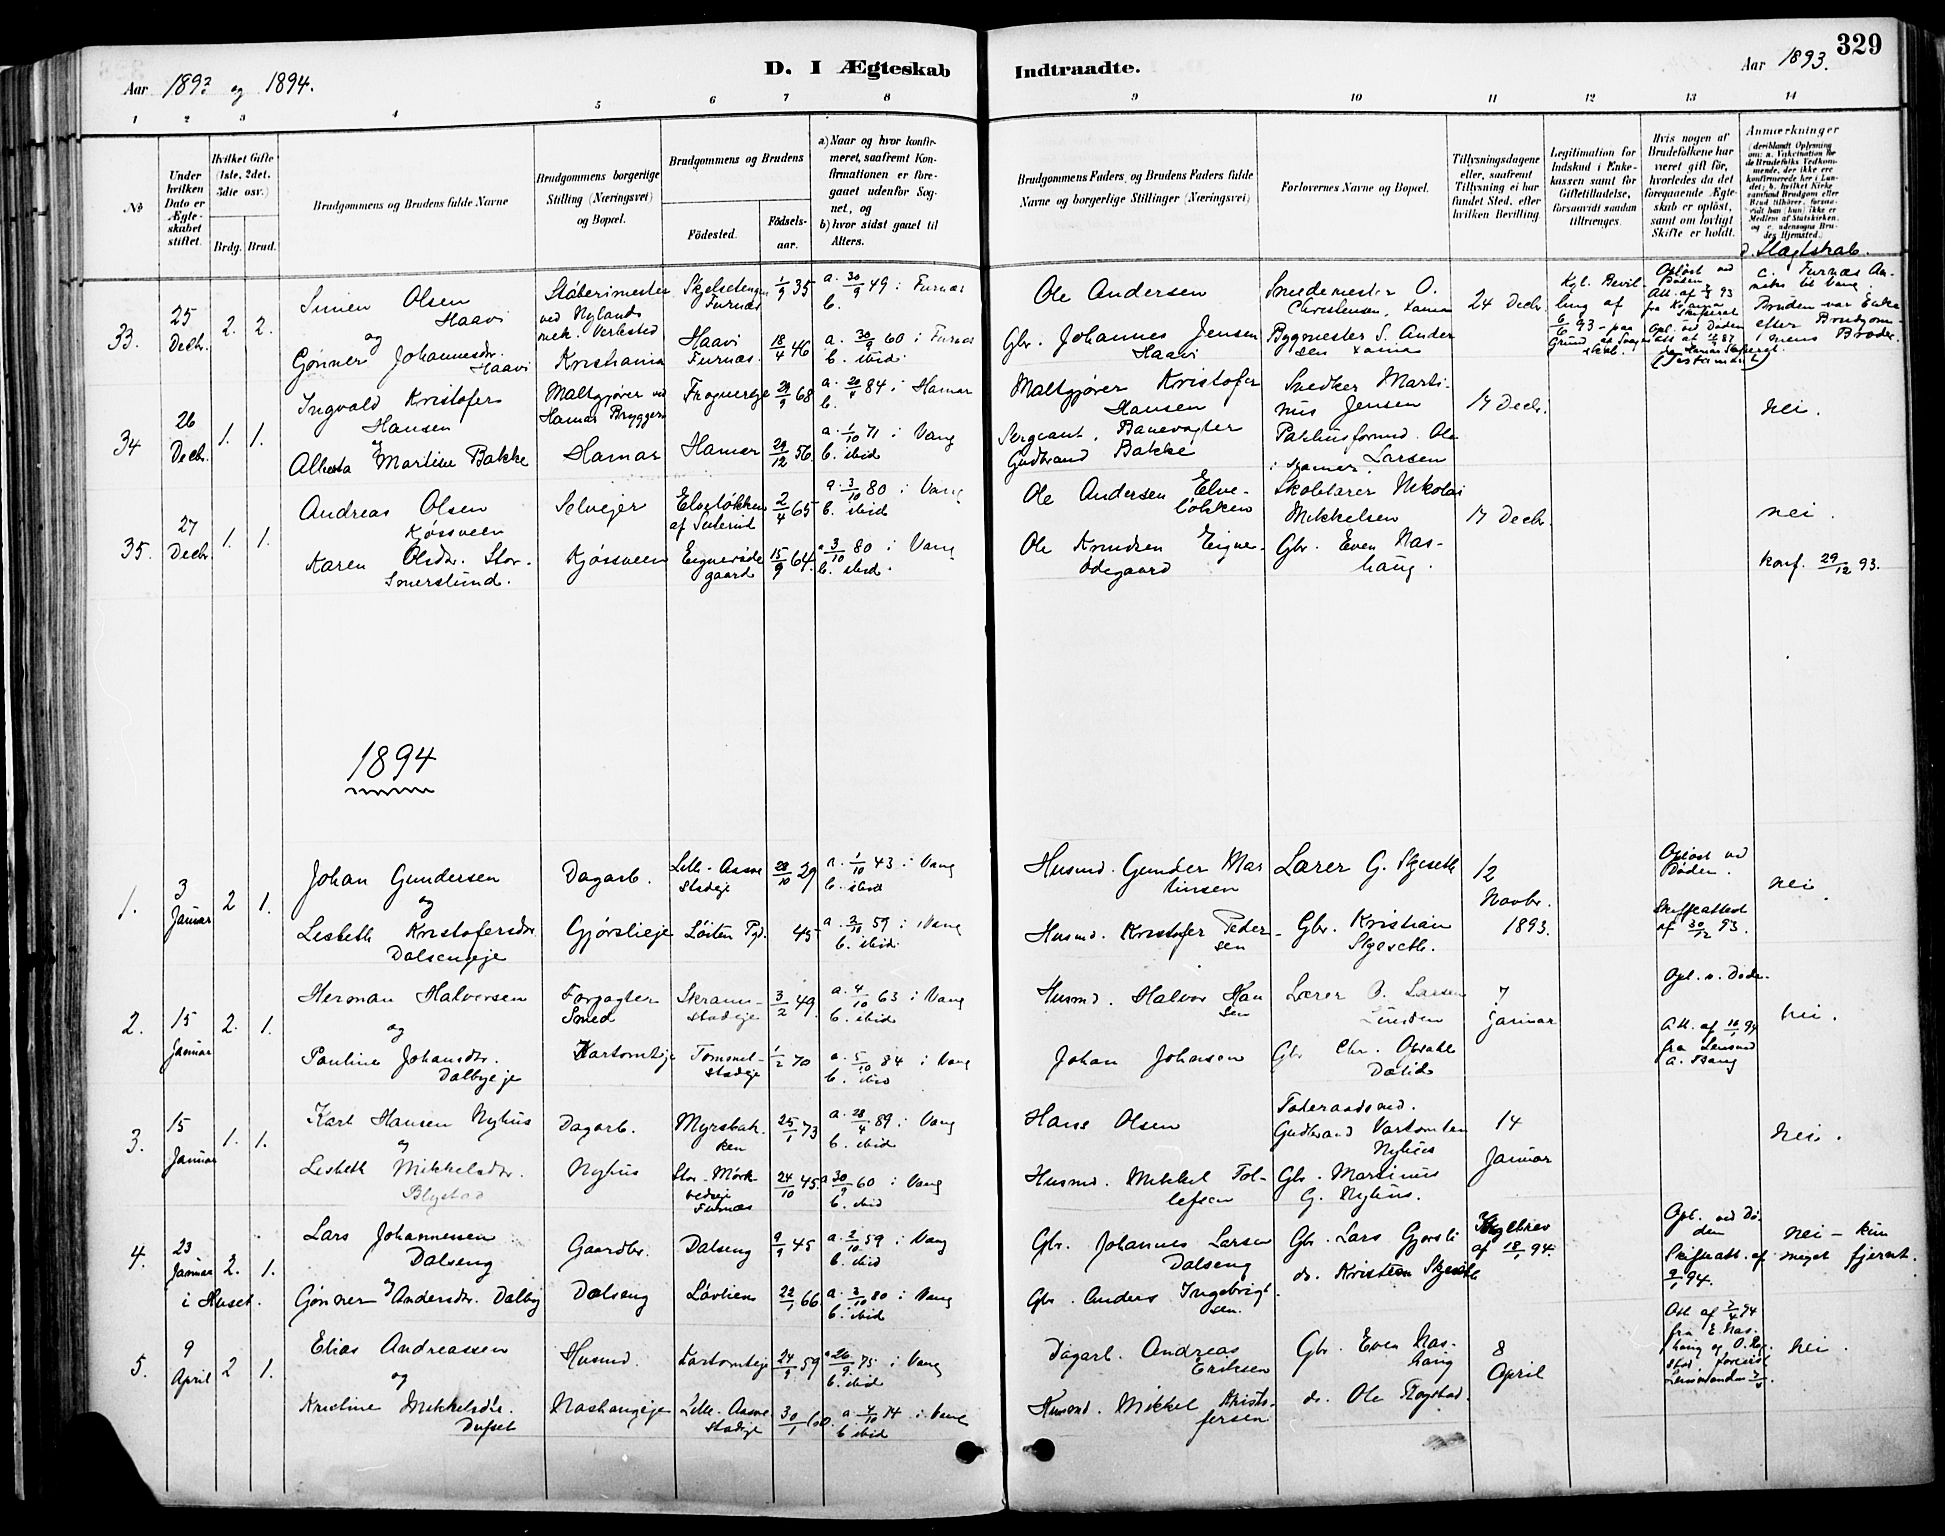 329
Aar 1893 og 1894.
D. I Ægteskab Indtraadte.
Aar 1893.
1 2 3 4 5 6 7 8 9 10 11 12 13 14
No
Under hvilken Dato er Ægteskabet stiftet.
Hvilket Gifte (1ste, 2det, 3die osv.)
Brdg. Brud.
Brudgommens og Brudens fulde Navne
Brudgommens borgerlige Stilling (Næringsvei) og Bopæl.
Brudgommens og Brudens
Födested. Födselsaar.
a) Naar og hvor konfirmeret, saafremt Konfirmationen er foregaaet udenfor Sognet, og
b) hvor sidst gaaet til Alters.
Brudgommens Faders og Brudens Faders fulde Navne og borgerlige Stillinger (Næringsvei)
Forlovernes Navne og Bopæl.
Tillysningsdagene eller, saafremt Tillysning ei har fundet Sted, efter hvilken Bevilling.
Legitimation for Indskud i Enkekassen samt for Giftetilladelse, forsaavidt saadan tiltrænges.
Hvis nogen af Brudefolkene har været gift før, hvorledes da det foregaaende Ægteskab er opløst, samt om lovligt Skifte er holdt.
Anmærkninger
d. Slagtskab.
33. 25 Decbr. 2. 2.
Simen Olsen Haavi
og
Gønner Johannesdr. Haavi
Støberimester ved Nylands mek. Verksted Kristiania
Furnæs 1/9 35 a. 30/9 49 i Furnæs
b.
Haavi Furnæs. 18/4 46 a. 30/9 60 i Furnæs
b. ibid.
Ole Andersen
Gbr. Johannes Jensen Haavi
Smedemester O. Christensen, Hamar
Bygmester S. Andersen Hamar
24 Decbr.
Kgl. Bevilling af 6/6 93 - paa Grund af Svogerskab.
Opløst ved Døden
c. Furnæs Anneks til Vang.
Bruden var Enke efter Brudgommens Broder.
34 26 Decbr. 1. 1.
Ingvald Kristofer Hansen
og
Alberta Martine Bakke
Maltgjører ved Hamar Bryggeri
Hamar
Frognereje 29/9 68 a. 20/4 84 i Hamar
b.
Hamar 29/12 56 a. 1/10 71 i Vang
b. ibid
Maltgjører Kristofer Hansen
Sergeant, Banevogter Gudbrand Bakke
Snedker Martinus Jensen
Pakhusformd. Ole Larsen i Hamar.
17 Decbr.
nei.
35. 27 Decbr. 1. 1.
Andreas Olsen Kjøsveen
Karen Olsdr. Storsmerslund.
Selvejer
Kjøsveen
Elveløkken 2/4 65 a. 3/10 80 i Vang
b. ibid
Eignerødegaard 15/9 64 a. 3/10 80 i Vang
b. ibid.
Ole Andersen Elveløkken
Ole Knudsen Eigneødegaard
Skolelærer Nikolai Mikkelsen
Gbr. Even Nashaug.
17 Decbr.
nei.
konf. 29/12 93.
1894
1. 3 Januar 2 1.
Johan Gundersen
og
Lisbeth Kristofersdr. Dalsengeje
Dagarb.
Gjørslieje
Lille-Aasmestadeje 28/10 29 a. 1/10 43 i Vang
b. ibid
Løiten Pgd. 45 a. 2/10 59 i Vang
b. ibid.
Husmd. Gunder Martinsen
Husmd. Kristofer Pedersen
Lærer G. Skjeseth
Gbr. Kristian Skjeseth.
12 Novbr. 1893.
Opløst ved Døden.
Skifteattest af 30/12 93.
nei
2. 15 Januar 2. 1.
Herman Halvorsen
og
Pauline Johansdr. Dalbyeje
Forpagter Smed
Vartomteje
Skramstadeje 3/2 49 a. 4/10 63 i Vang
b. ibid
Tommelstadeje 1/2 70 a. 5/10 84 i Vang
b. ibid
Husmd. Halvor Hansen
Johan Johnsen
Lærer P. Larsen Linsden
Gbr Chr. Opsahl
7 Januar
Opl. v. Døde.
Att. af 10/1 94 fra Lensmd A. Bang
nei.
3. 15 Januar 1. 1.
Karl Hansen Nyhus
og
Lisbeth Mikkelsdr. Blystad
Dagarb.
Nyhus
Myrsbakken 25/1 73 a. 28/4 89 i Vang
b. ibid
Stor-Mørkvedeje Furnæs 24/10 45 a 30/9 60 i Vang
b. ibid
Hans Olsen
Husmd. Mikkel Tollefsen
Føderaadsmd. Gudbrand Vartomten Nyhus
Gbr. Martinus G. Nyhus.
14 Januar
nei.
4. 23 Januar 2. 1.
i Huset.
Lars Johannessen Dalseng
og
Gønner Andersdr. Dalby
Gaardbr.
Dalseng
Dalseng 9/9 45 a. 2/10 59 i Vang
b. ibid
Lovlien 22/1 66 a. 3/10 80 i Vang
b. ibid
Gbr. Johannes Larsen Dalseng
Gbr. Anders Ingebrigtsen.
Gbr. Lars Gjørsli
do. Kristian Skjeseth
Kgebrev af 18/1 94.
Opl. ved Døden
Skifteatt. af 9/1 94.
nei - kun meget fjernt.
5. 9 April 2 1.
Elias Andreassen
og
Kristine Mikkelsdr. Dufset
Husmd.
Nashaugeje
Vartomteje 24/9 59 a 26/9 75 i Vang
b. ibid
Lille-Aasmestadeje 30/1 60 a. 4/10 74 i Vang
b ibid
Dagarb. Andreas Eriksen
Husmd. Mikkel Kristofersen
Gbr. Even Nashaug
do. Ole Rogstad.
8 April
Att. af 2/4 94 fra E. Nashaug og O. Rogstad
nei.